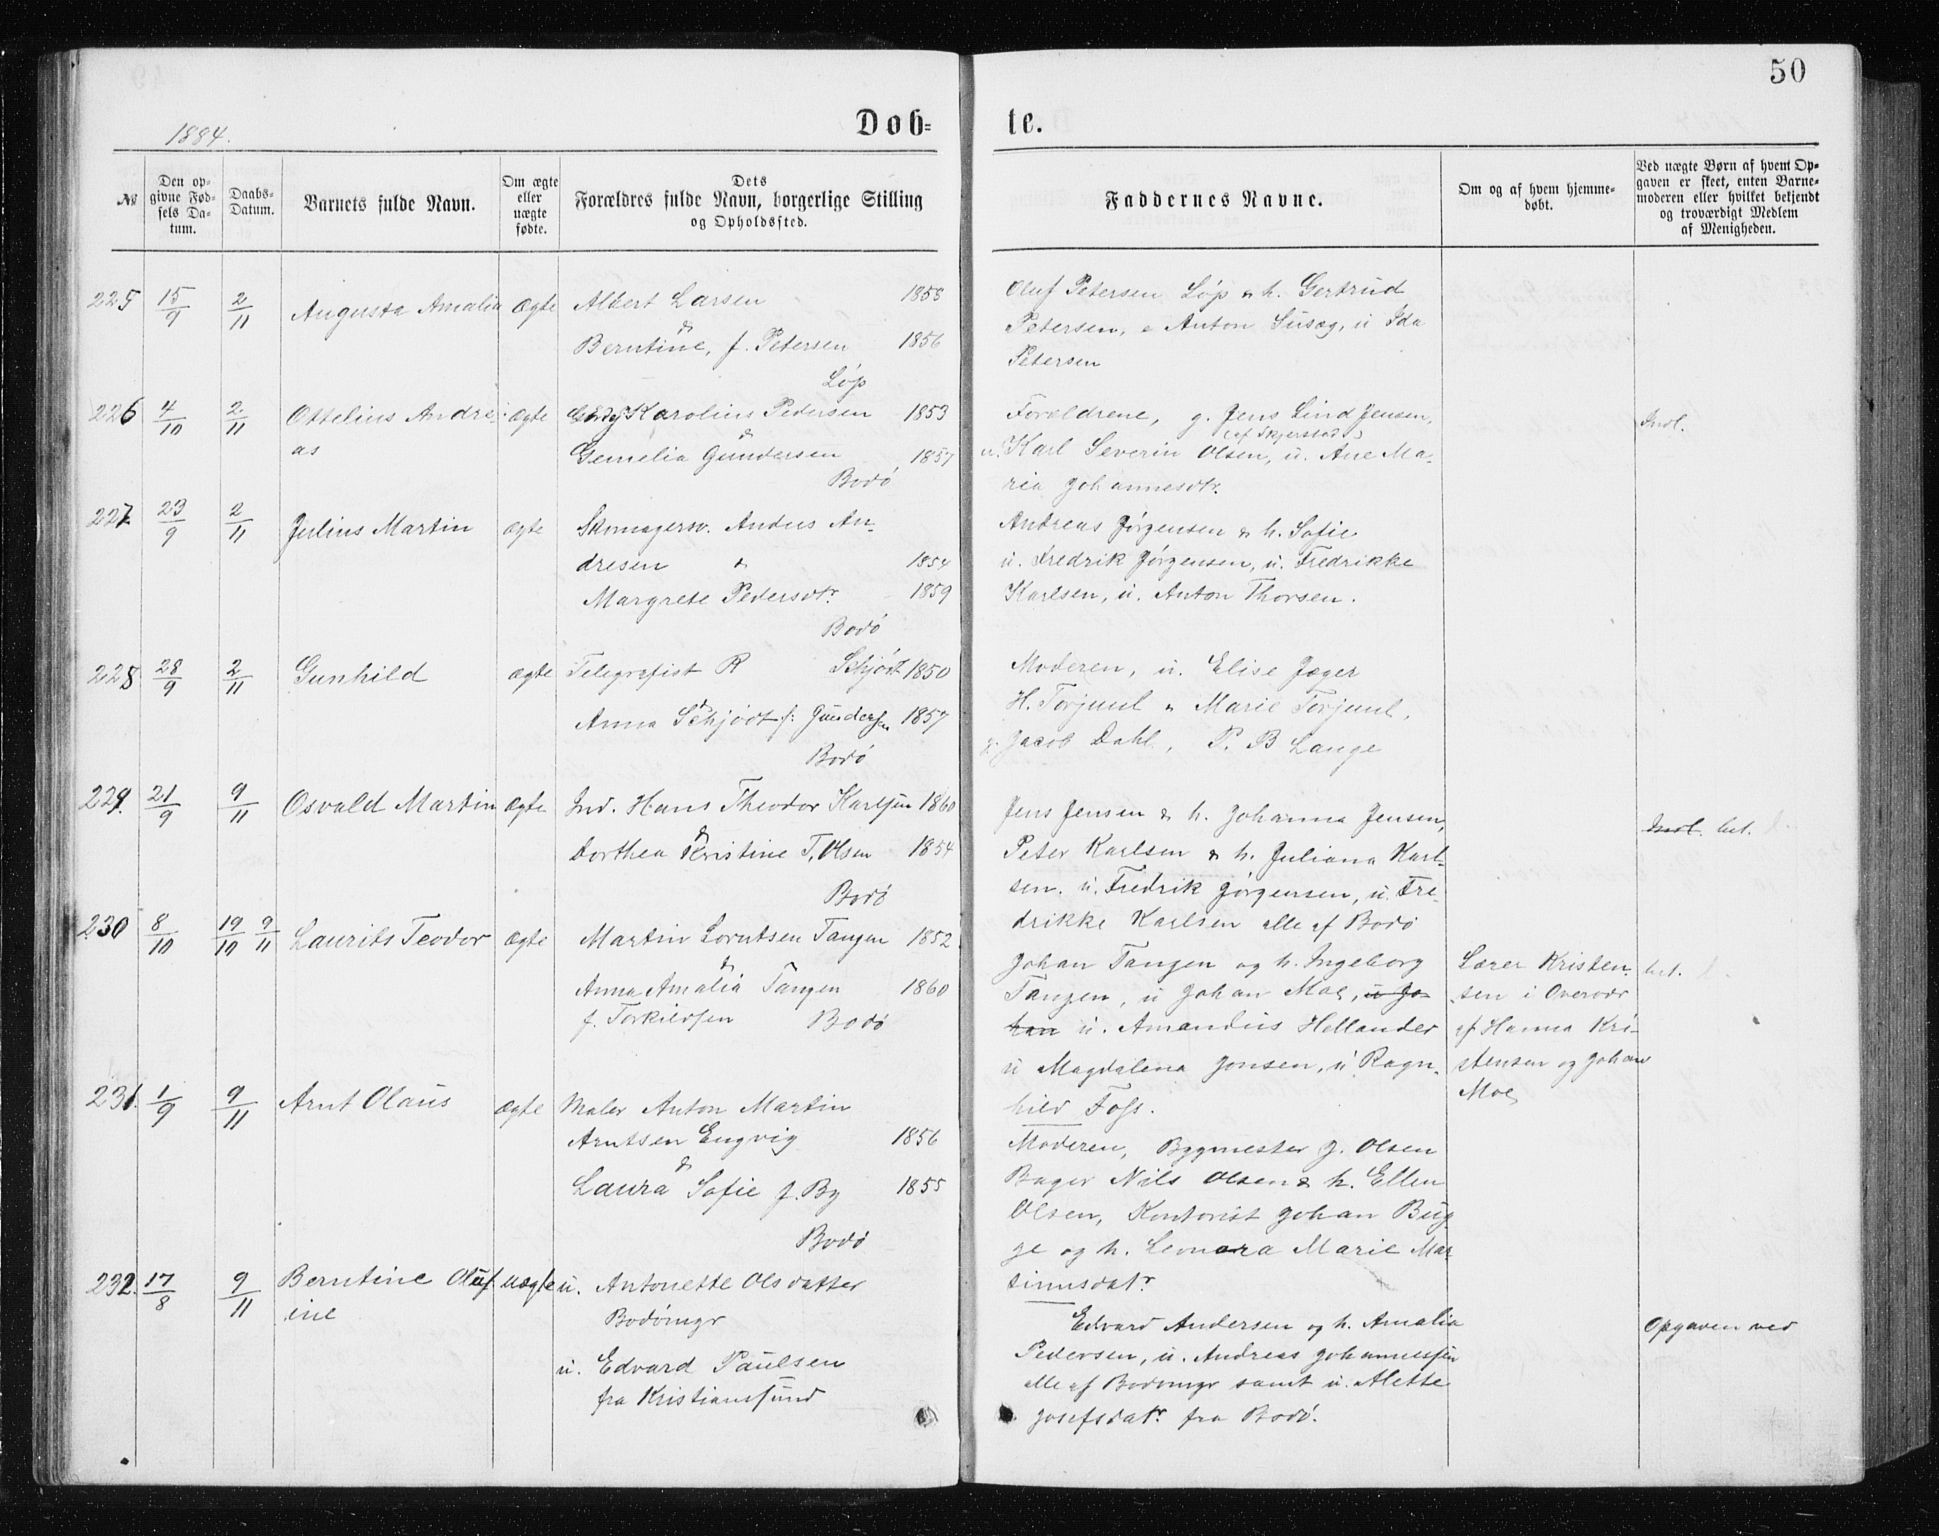 50
1884.
Dob=
te.
№
Den op-
givne Fød-
sels Da-
tum.
Daabs-
Datum.
Barnets fulde Navn.
Om ægte
eller
uægte
fødte.
Dets
Forældres fulde Navn, borgerlige Stilling
og Opholdssted.
Faddernes Navne.
Om og af hvem hjemme-
døbt.
Ved uægte Børn af hvem Op-
gaven er skeet, enten Barne-
moderen eller hvilket bekjendt
og troværdigt Medlem
af Menigheden.
225 15/9 2/11 Augusta Amalia ægte Albert Larsen 1858
&
Berntine, f. Petersen 1856
Løp
Oluf Petersen Løp & h. Gertrud
Petersen, Anton Susæg, u Ida
Petersen
226 4/10 2/11 Ottelius Andre- ægte Karolius Pedersen 1853
as
&
Gemelia Gundersen 1857
Bodø
Forældrene, g. Jens Lind Jensen,
(af Skjerstad)
u. Karl Severin Olsen, u. Ane Ma-
ria Johannesdtr.
Indl.
227. 23/9 2/11 Julius Martin ægte Skomagersv. Andus An-
dresen & 1854
Margrete Pedersdtr. 1859
Bodø
Andreas Jørgensen & h. Sofie
u. Fredrik Jørgensen, u. Fredrikke
Karlsen, u. Anton Thorsen.
228 28/9 2/11 Gunhild ægte Telegrafist R Schjødt 1850
&
Anna Schjødt f. Gundersen 1857
Bodø
Moderen, u. Elise Jæger
H. Torjuul & Marie Torjuul,
g. Jacob Dahl, P. B Lange
229. 21/9 9/11 Osvald Martin ægte Ind. Hans Theodor Karlsen 1860
&
Dorthea Kristine T. Olsen 1854
Bodø
Jens Jensen & h. Johanna Jensen,
Peter Karlsen & h. Juliana Karl-
sen. u. Fredrik Jørgensen, u. Fre-
drikke Karlsen alle af Bodø
Indl. bet.
230 8/10 19/10 9/11 Laurits Teodor ægte Martin Lorntsen Tangen 1852
&
Anna Amalia Tangen 1860
f. Torkildsen Bodø
Johan Tangen og h. Ingeborg
Tangen, u Johan Moe, u Jo-
han u. Amandus Hellander
u Magdalena Jonsen, u Ragn-
hild Foss.
Lærer Kristen-
sen i Overodr
af Hanna Kri-
stensen og Johan
Moe
bet.
231. 1/9 9/11 Arnt Olaus ægte Maler Anton Martin
Arntsen Engvig 1856
&
Laura Sofie f. By 1855
Bodø
Moderen, Bygmester J. Olsen
Bager Nils Olsen & h. Ellen
Olsen, Kontorist Johan Bug-
ge og h. Leonora Marie Mar-
tinusdatr.
232. 17/8 9/11 Berntine Oluf- uægte u. Antonette Olsdatter
ine
Bodømgr
u. Edvard Paulsen
fra Kristiansund
Edvard Andersen og h. Amalia
Pedersen, u. Andreas Johannessen
alle af Bodømgr samt u. Alette
Josefsdatr. fra Bodø.
Opgaven ved